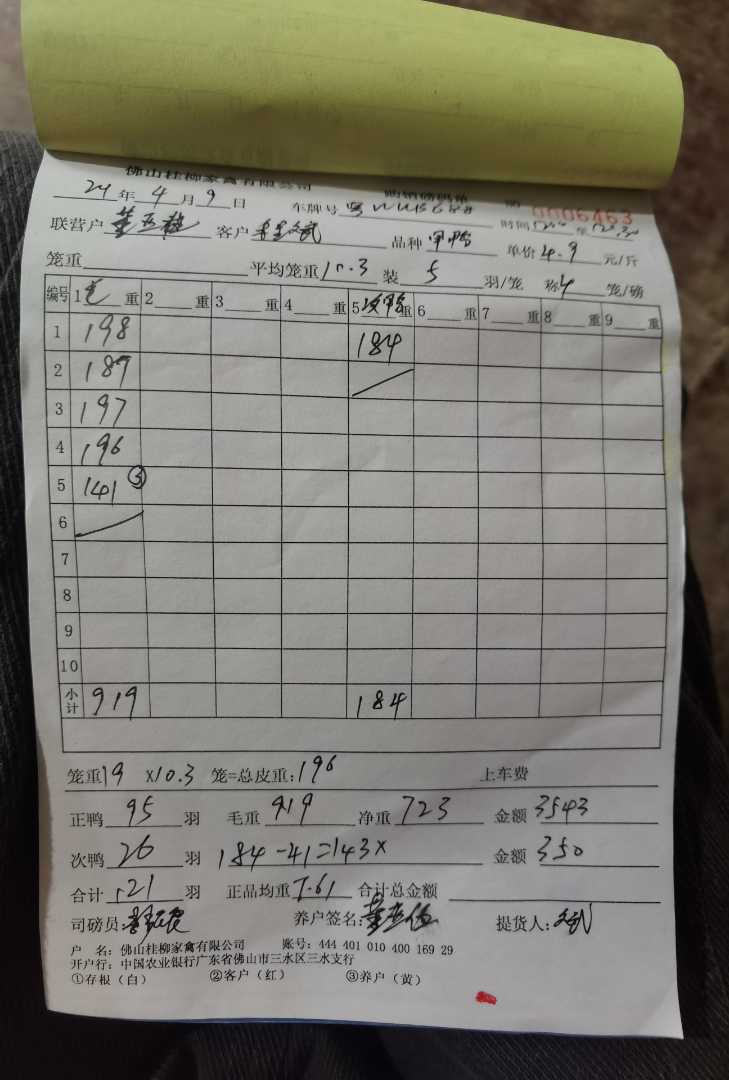 佛山桂柳家禽有限公司
24年4月9日 车牌号 0006463
联营户 客户 品种 单价4.9元/斤
笼重 平均笼重10.3 装5羽/笼 称4笼/磅
编号 1毛重 2重 3重 4重 5次鸭重 6重 7重 8重 9重
1 198 184
2 189
3 197
4 196
5 141③
6
7
8
9
10
小计 919 184
笼重19 X10.3 笼=总皮重:196 上车费
正鸭95羽 毛重919 净重723 金额3543
次鸭26羽 184-41=143x 金额350
合计121羽 正品均重7.61 合计总金额
司磅员: 养户签名: 提货人:文斌
户 名: 佛山桂柳家禽有限公司 账号: 444 401 010 400 169 29
开户行: 中国农业银行广东省佛山市三水区三水支行
①存根（白） ②客户（红） ③养户（黄）